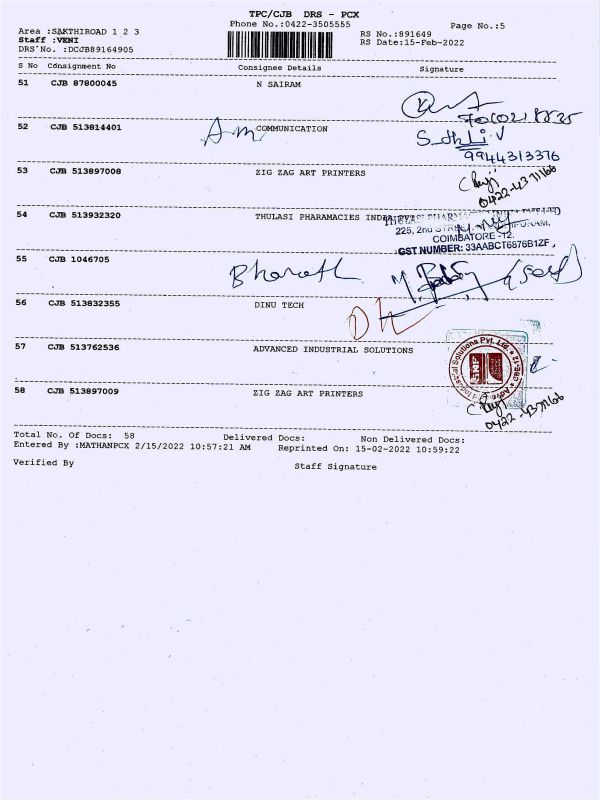 TPC/CJB DRS - PCX
Phone No.:0422-3505555 Page No.:5
Area :SAKTHIROAD 1 2 3 RS No.:891649
Staff :VENI RS Date:15-Feb-2022
DRS No. :DCJB89164905
S No Consignment No Consignee Details Signature
51 CJB 87800045 N SAIRAM
52 CJB 513814401 Am COMMUNICATION
9944313376
53 CJB 513897008 ZIG ZAG ART PRINTERS
0422-4371166
54 CJB 513932320 THULASI PHARAMACIES INDIA PVT
COIMBATORE -12.
GST NUMBER: 33AABCT6876B1ZF,
55 CJB 1046705 Bharath
56 CJB 513832355 DINU TECH
57 CJB 513762536 ADVANCED INDUSTRIAL SOLUTIONS
Industrial Solutions Pvt. Ltd
58 CJB 513897009 ZIG ZAG ART PRINTERS
0422-4371166
Total No. Of Docs: 58 Delivered Docs: Non Delivered Docs:
Entered By :MATHANPCX 2/15/2022 10:57:21 AM Reprinted On: 15-02-2022 10:59:22
Verified By Staff Signature